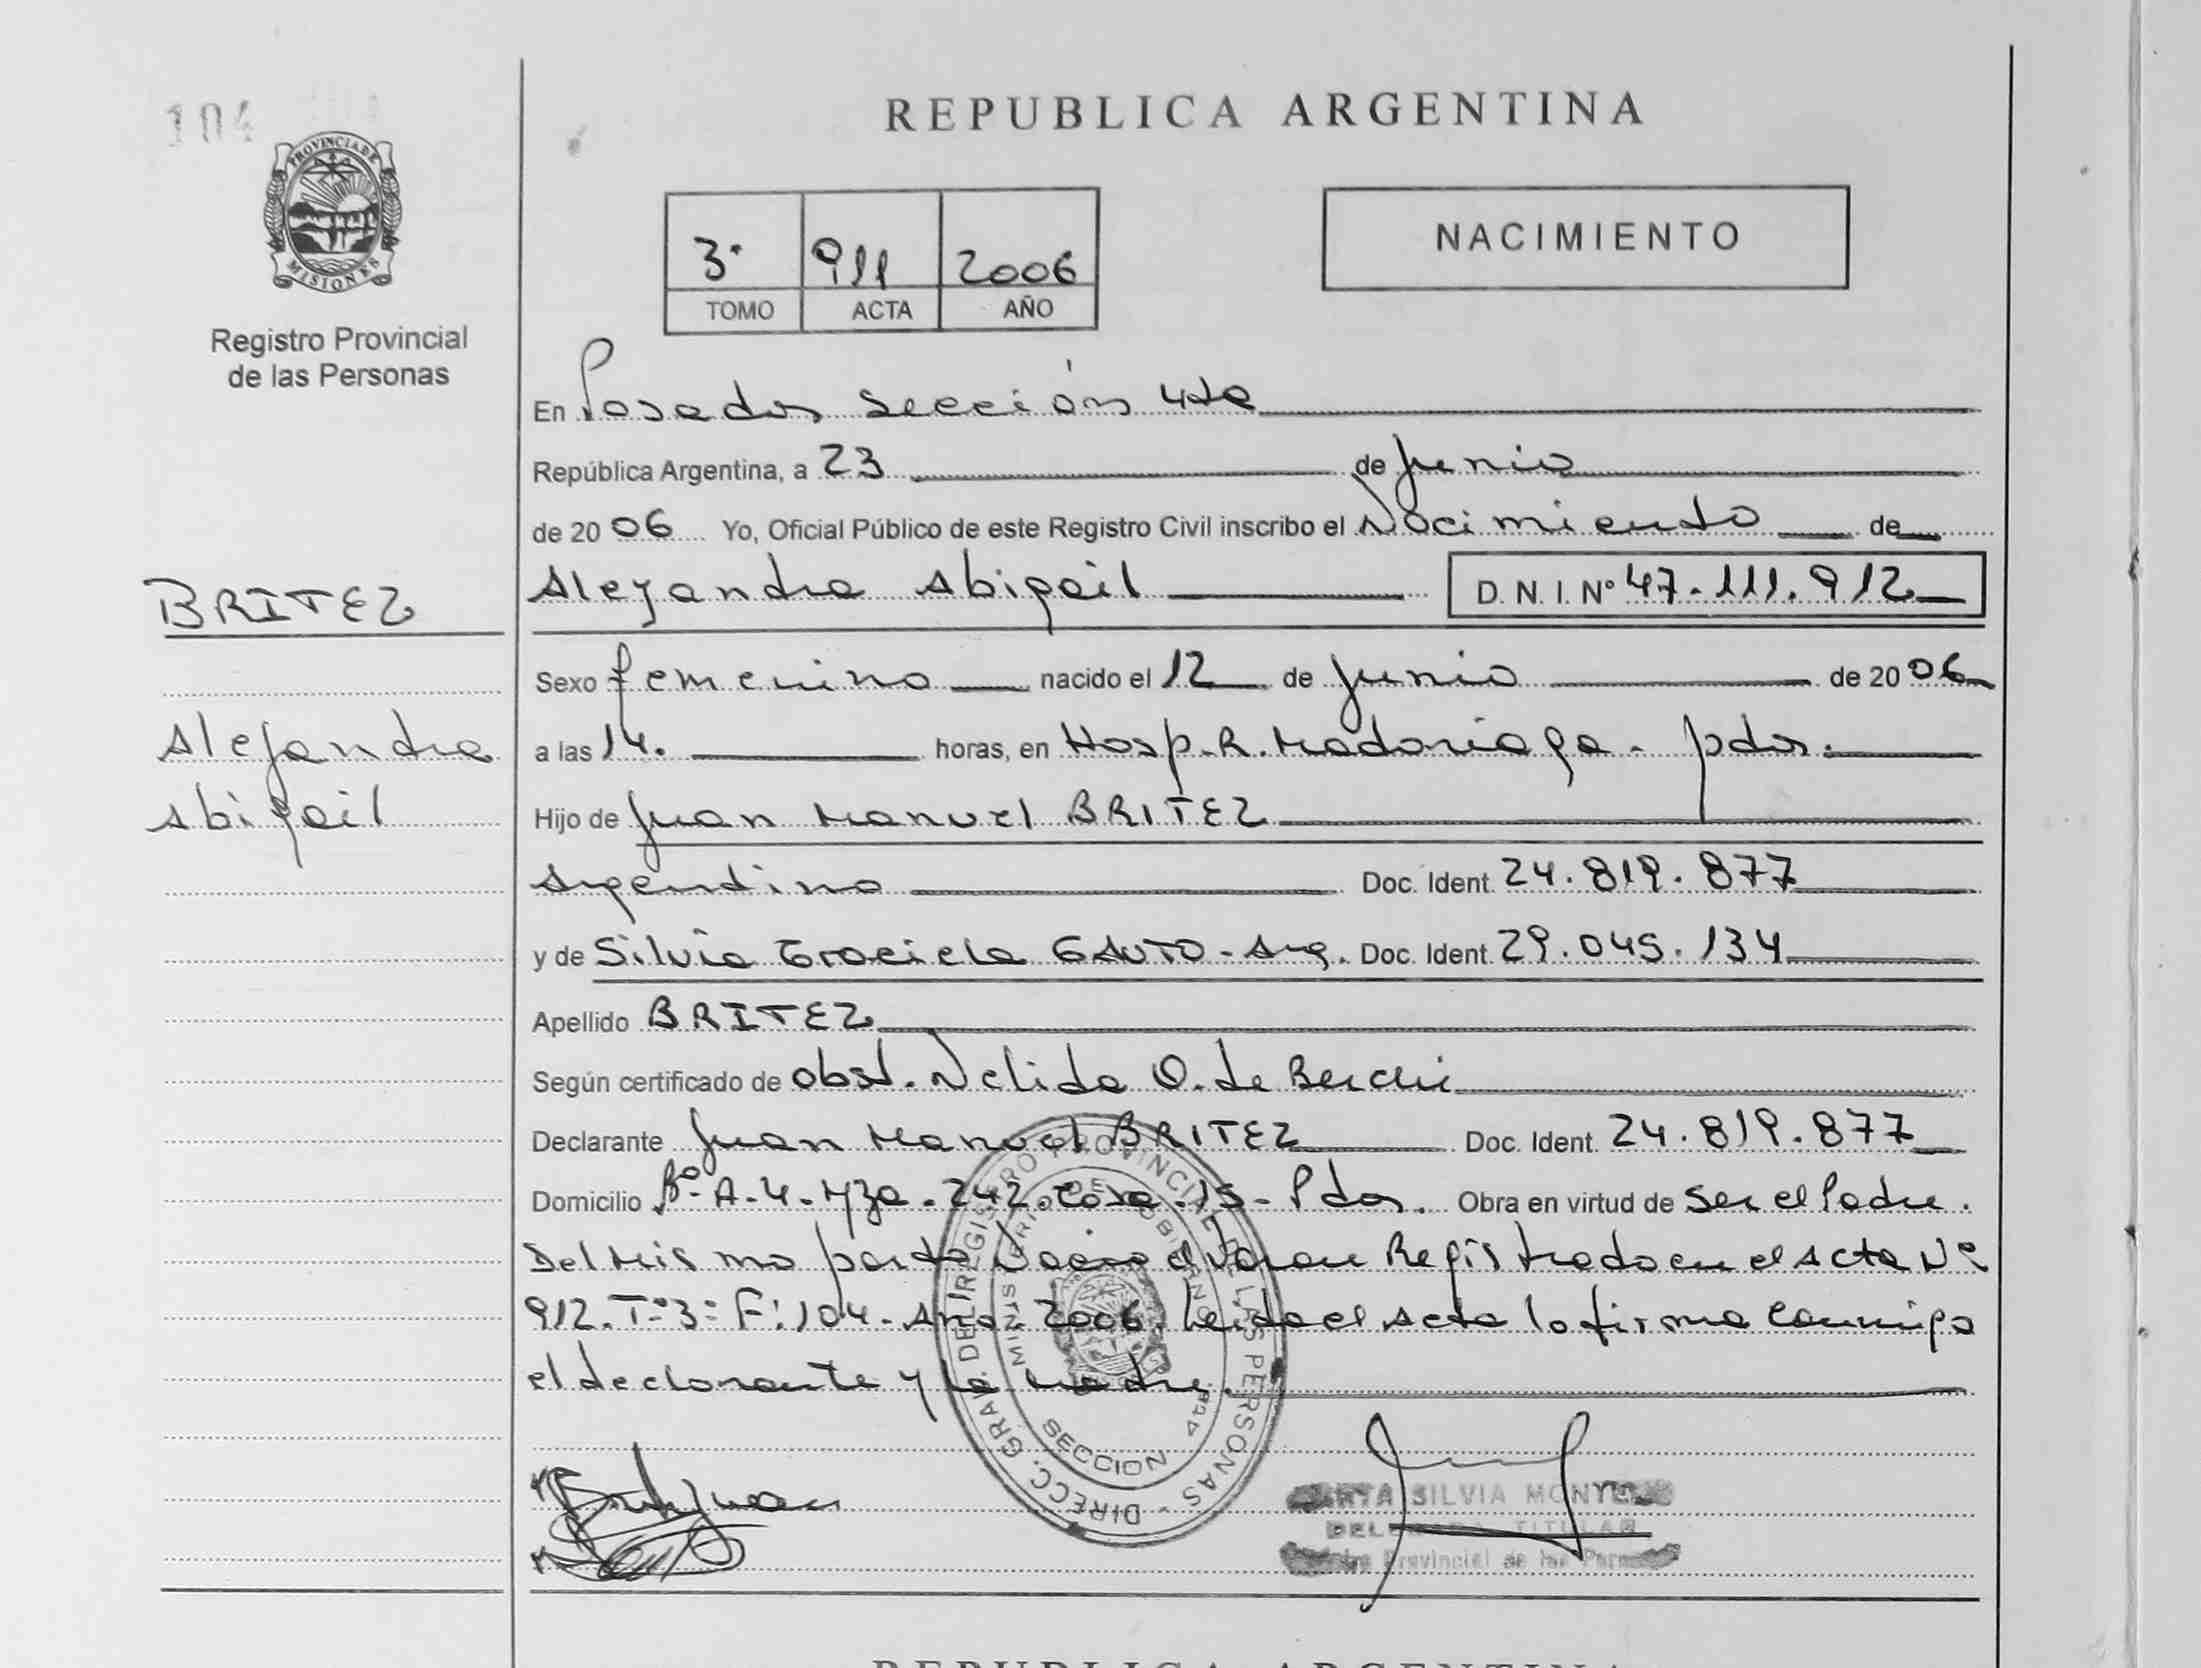 104
PROVINCIA DE
MISIONES
Registro Provincial
de las Personas
BRITEZ
Alejandra
Abigail
REPUBLICA ARGENTINA
3º 911 2006
TOMO ACTA AÑO
NACIMIENTO
En Posadas Sección 4ta
República Argentina, a 23 de Junio
de 2006 Yo, Oficial Público de este Registro Civil inscribo el Nacimiento de
Alejandra Abigail D. N. I. Nº 47.111.912
Sexo femenino nacido el 12 de Junio de 2006
a las 14. horas, en Hosp. R. Madariaga - pdas.
Hijo de Juan Manuel BRITEZ
Argentino Doc. Ident. 24.819.877
y de Silvia Graciela GAUTO - Arg. Doc. Ident. 29.045.134
Apellido BRITEZ
Según certificado de obst. Nelida O. de
Declarante Juan Manuel BRITEZ Doc. Ident. 24.819.877
Domicilio Bº A-4-Mza. 242. Casa. 15 - Pdas. Obra en virtud de ser el Padre.
Del Mismo parto Nacio el Varon Registrado en el Acta Nº
912. Tº3º F: 104 - Año: 2006. Leida el Acta lo firma Conmigo
el declarante y la Madre.
DIRECC. GRAL. DEL REGISTRO PROVINCIAL DE LAS PERSONAS -
MINISTERIO DE GOBIERNO
SECCION 4ta
Juan
SILVIA
TITULAR
Provincial de las
REPUBLICA ARGENTINA